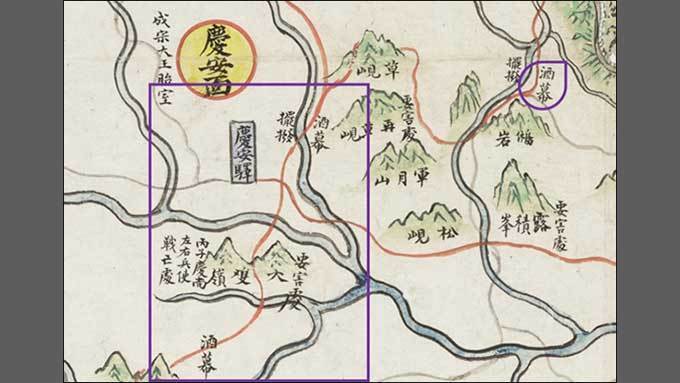 慶安面
成宗大王胎室
慶安驛
擺撥
酒幕
草峴
要害處
再草峴
軍月山
松峴
擺撥
酒幕
露積峯
要害處
大雙嶺
要害處
丙子慶尙
左右兵使
戰亡處
酒幕